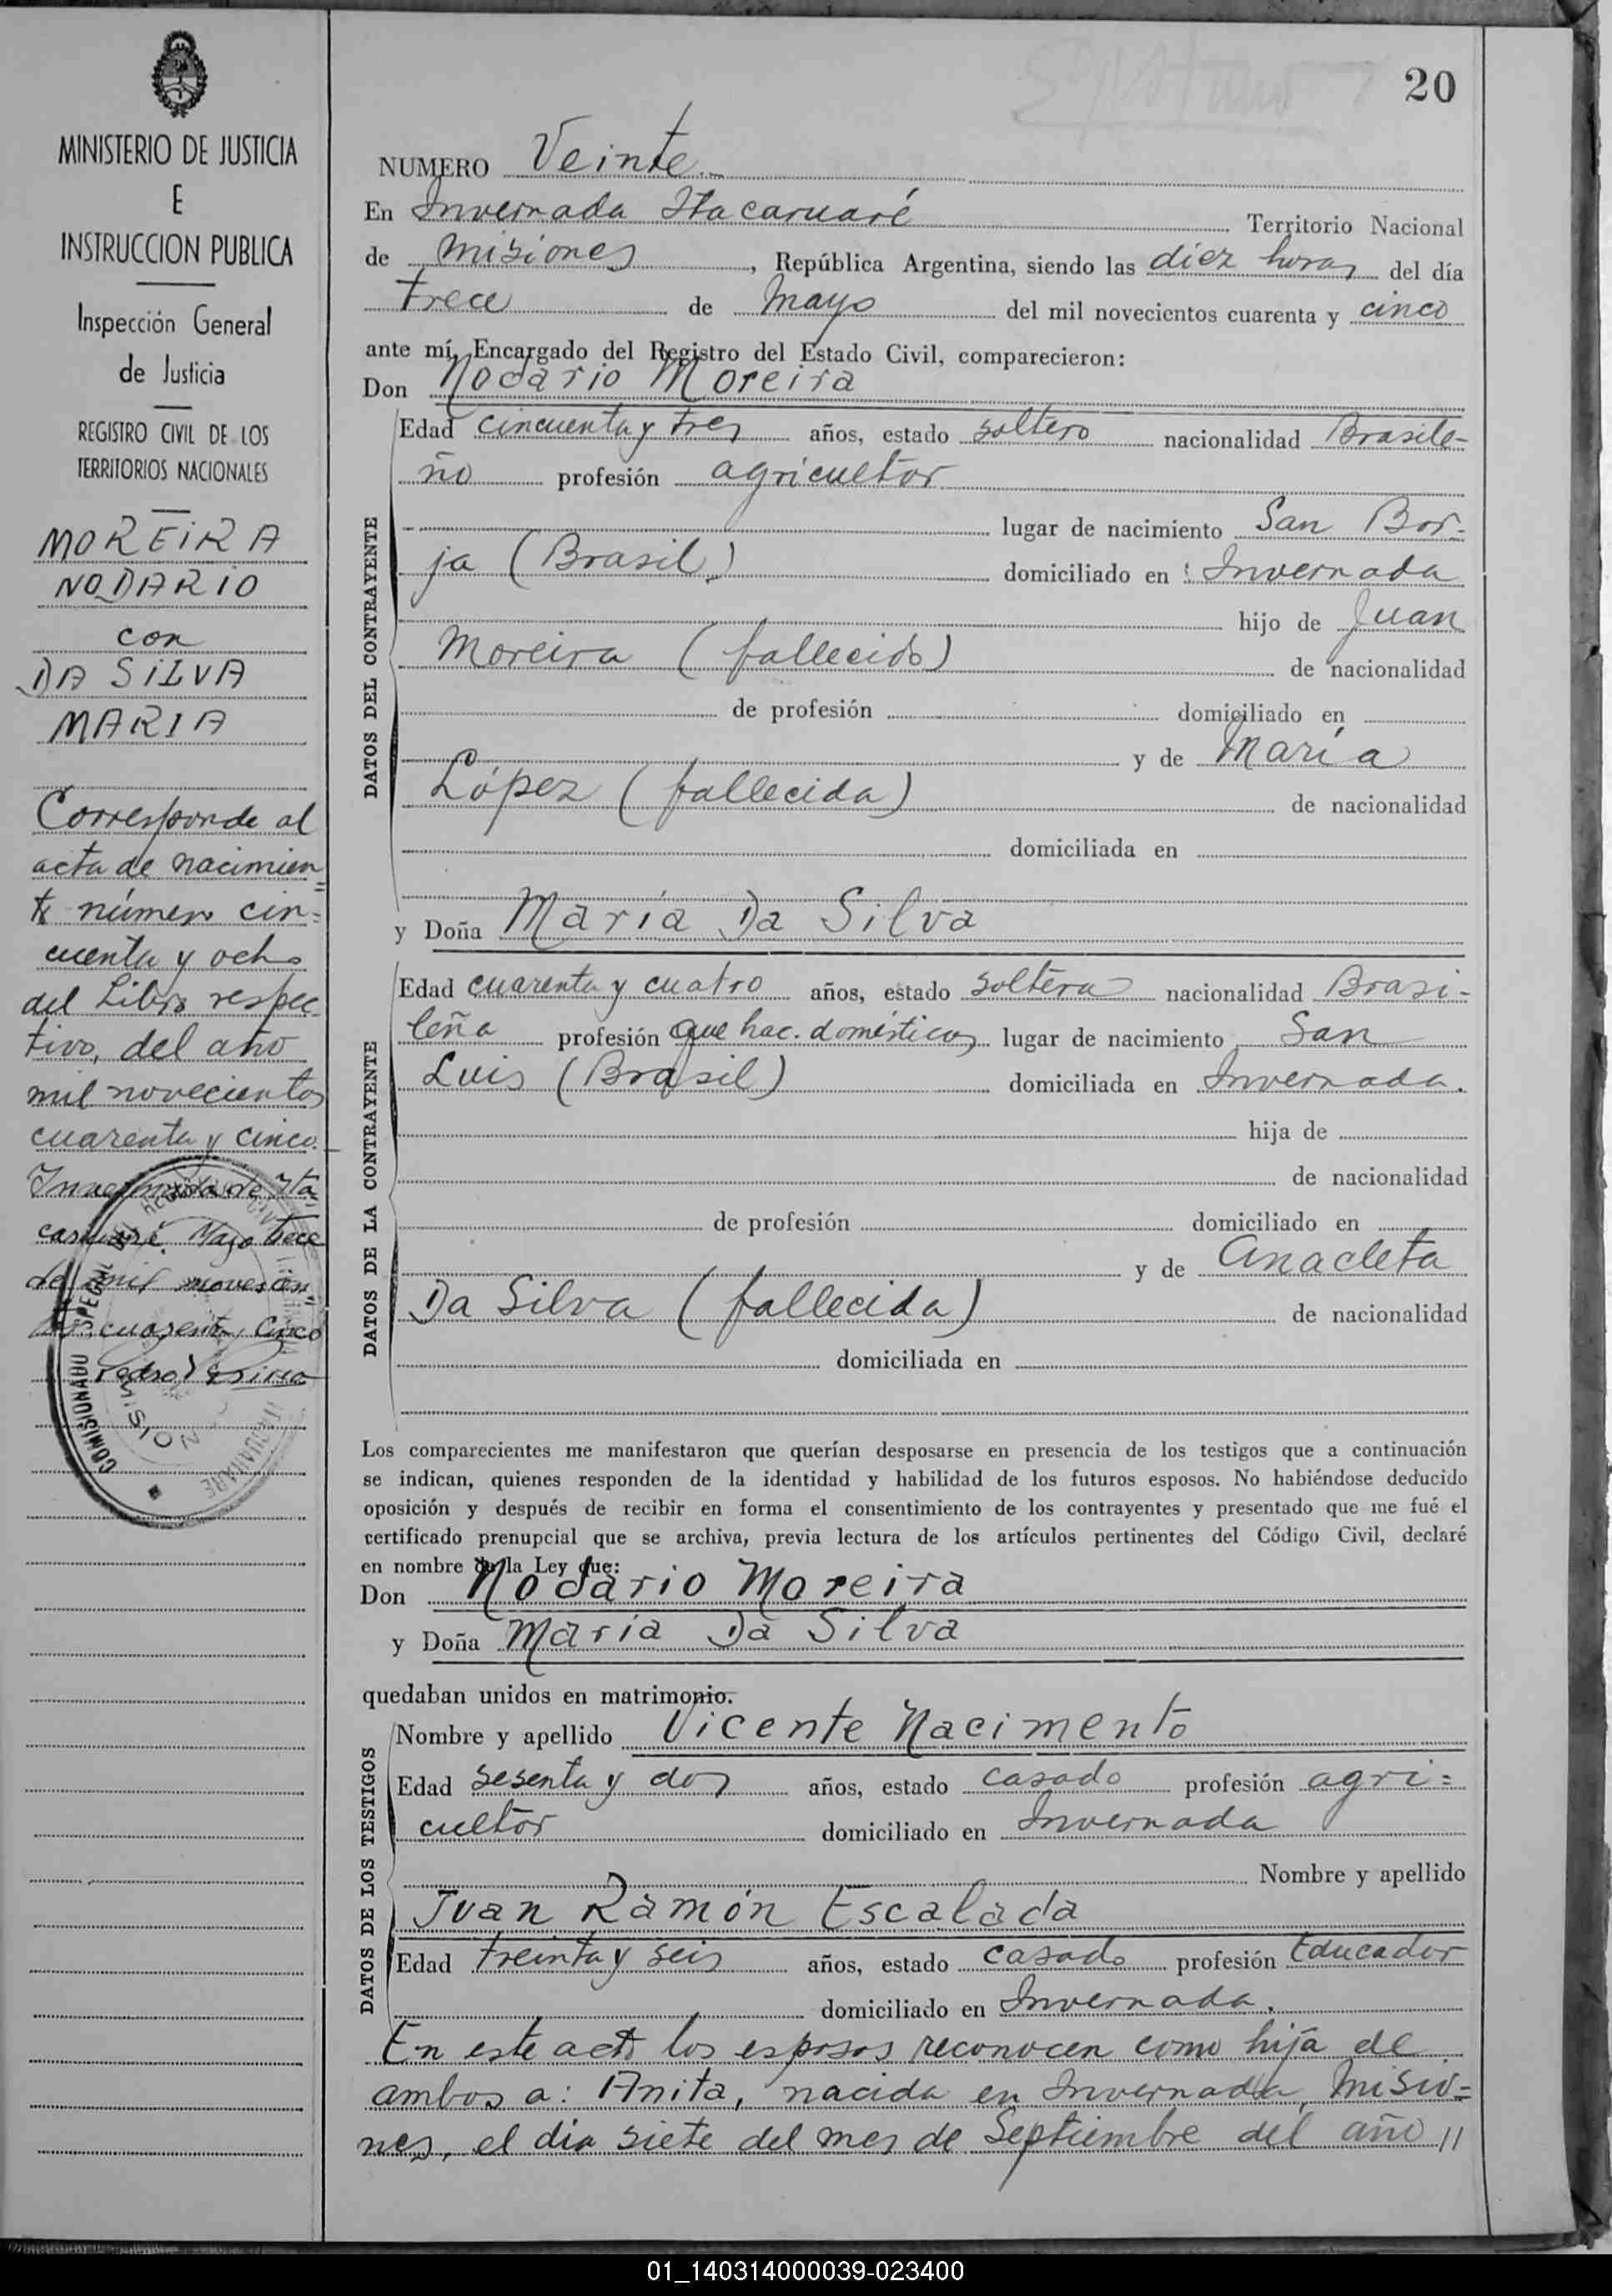 20
MINISTERIO DE JUSTICIA
E
INSTRUCCION PUBLICA
Inspección General
de Justicia
REGISTRO CIVIL DE LOS
TERRITORIOS NACIONALES
MOREIRA
NODARIO
con
DA SILVA
MARIA
Corresponde al
acta de nacimien=
to número cin=
cuenta y ocho
del Libro respec
tivo, del año
mil novecientos
cuarenta y cinco.
Invernada de Ita
caruaré. Mayo trece
de mil novecien=
tos cuarenta y cinco
Pedro
COMISIONADO ESPECIAL DEL REGISTRO CIVIL
MISIONES
ITACARUARE
NUMERO Veinte
En Invernada Itacaruaré Territorio Nacional
de Misiones, República Argentina, siendo las diez horas del día
trece de Mayo del mil novecientos cuarenta y cinco
ante mí, Encargado del Registro del Estado Civil, comparecieron:
Don Nodario Moreira
DATOS DEL CONTRAYENTE
Edad cincuenta y tres años, estado soltero nacionalidad Brasile-
ño profesión agricultor
lugar de nacimiento San Bor=
ja (Brasil) domiciliado en Invernada
hijo de Juan
Moreira (fallecido) de nacionalidad
de profesión domiciliado en
y de María
López (fallecida) de nacionalidad
domiciliada en
y Doña María Da Silva
DATOS DE LA CONTRAYENTE
Edad cuarenta y cuatro años, estado soltera nacionalidad Brasi-
leña profesión Que hac. domésticos lugar de nacimiento San
Luis (Brasil) domiciliada en Invernada.
hija de
de nacionalidad
de profesión domiciliado en
y de Anacleta
Da Silva (fallecida) de nacionalidad
domiciliada en
Los comparecientes me manifestaron que querían desposarse en presencia de los testigos que a continuación
se indican, quienes responden de la identidad y habilidad de los futuros esposos. No habiéndose deducido
oposición y después de recibir en forma el consentimiento de los contrayentes y presentado que me fué el
certificado prenupcial que se archiva, previa lectura de los artículos pertinentes del Código Civil, declaré
en nombre de la Ley que:
Don Nodario Moreira
y Doña María Da Silva
quedaban unidos en matrimonio.
DATOS DE LOS TESTIGOS
Nombre y apellido Vicente Nacimento
Edad sesenta y dos años, estado casado profesión agri=
cultor domiciliado en Invernada
Nombre y apellido
Juan Ramón Escalada
Edad treinta y seis años, estado casado profesión Educador
domiciliado en Invernada.
En este acto los esposos reconocen como hija de
ambos a: Anita, nacida en Invernada, Misio=
nes, el dia siete del mes de Septiembre del año //
01_140314000039-023400